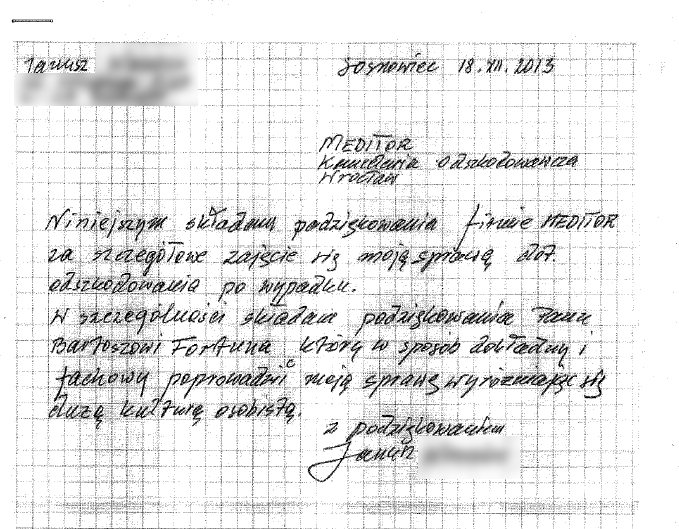 Janusz
Sosnowiec 18.XII.2013
MEDITOR
Kancelaria odszkodowawcza
Wrocław
Niniejszym składam podziękowania firmie MEDITOR
za szczegółowe zajęcie się moją sprawą dot.
odszkodowania po wypadku.
W szczególności składam podziękowania Panu
Bartoszowi Fortuna który w sposób dokładny i
fachowy poprowadzić moją sprawę wyrózniając się
duzą kulturą osobistą.
z podziękowaniem
Janusz